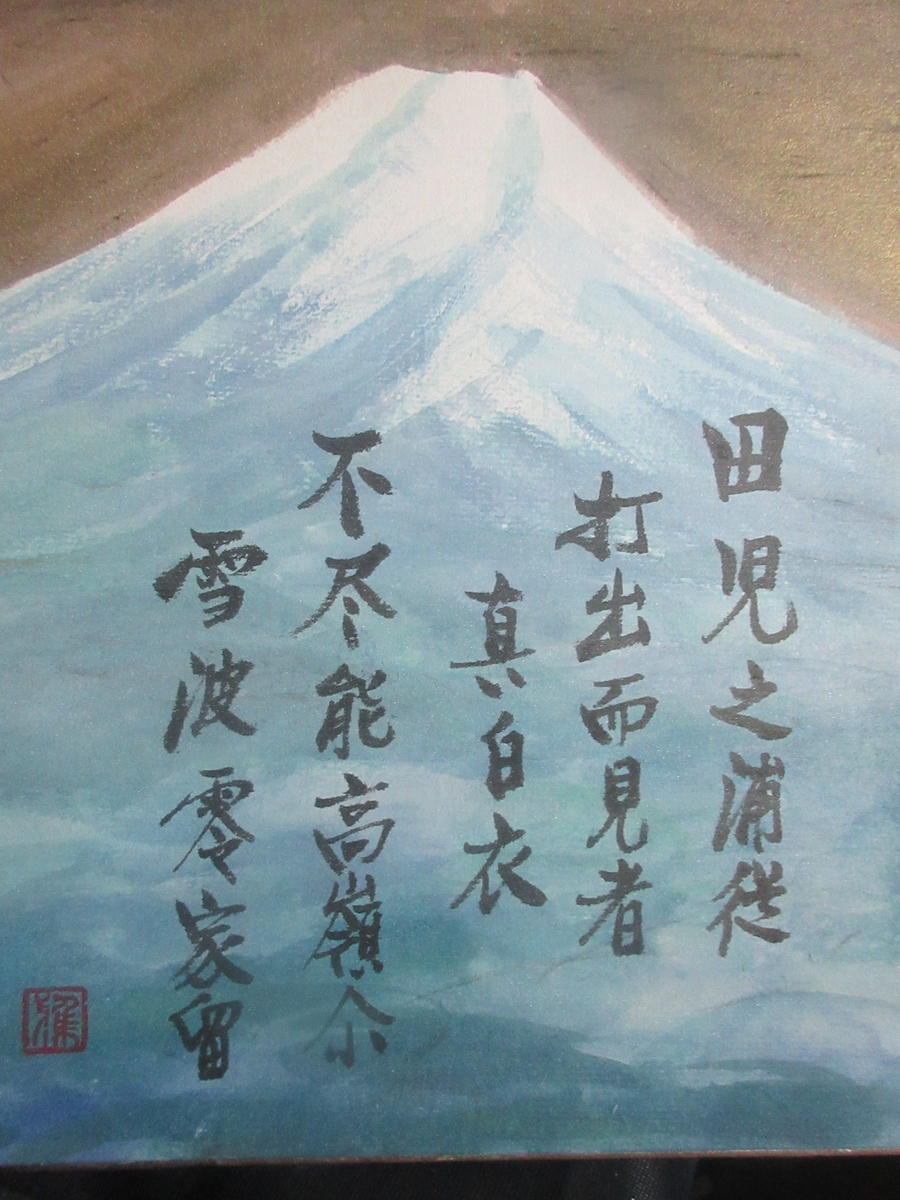 田児之浦従
打出而見者
真白衣
不尽能高嶺尒
雪波零家留